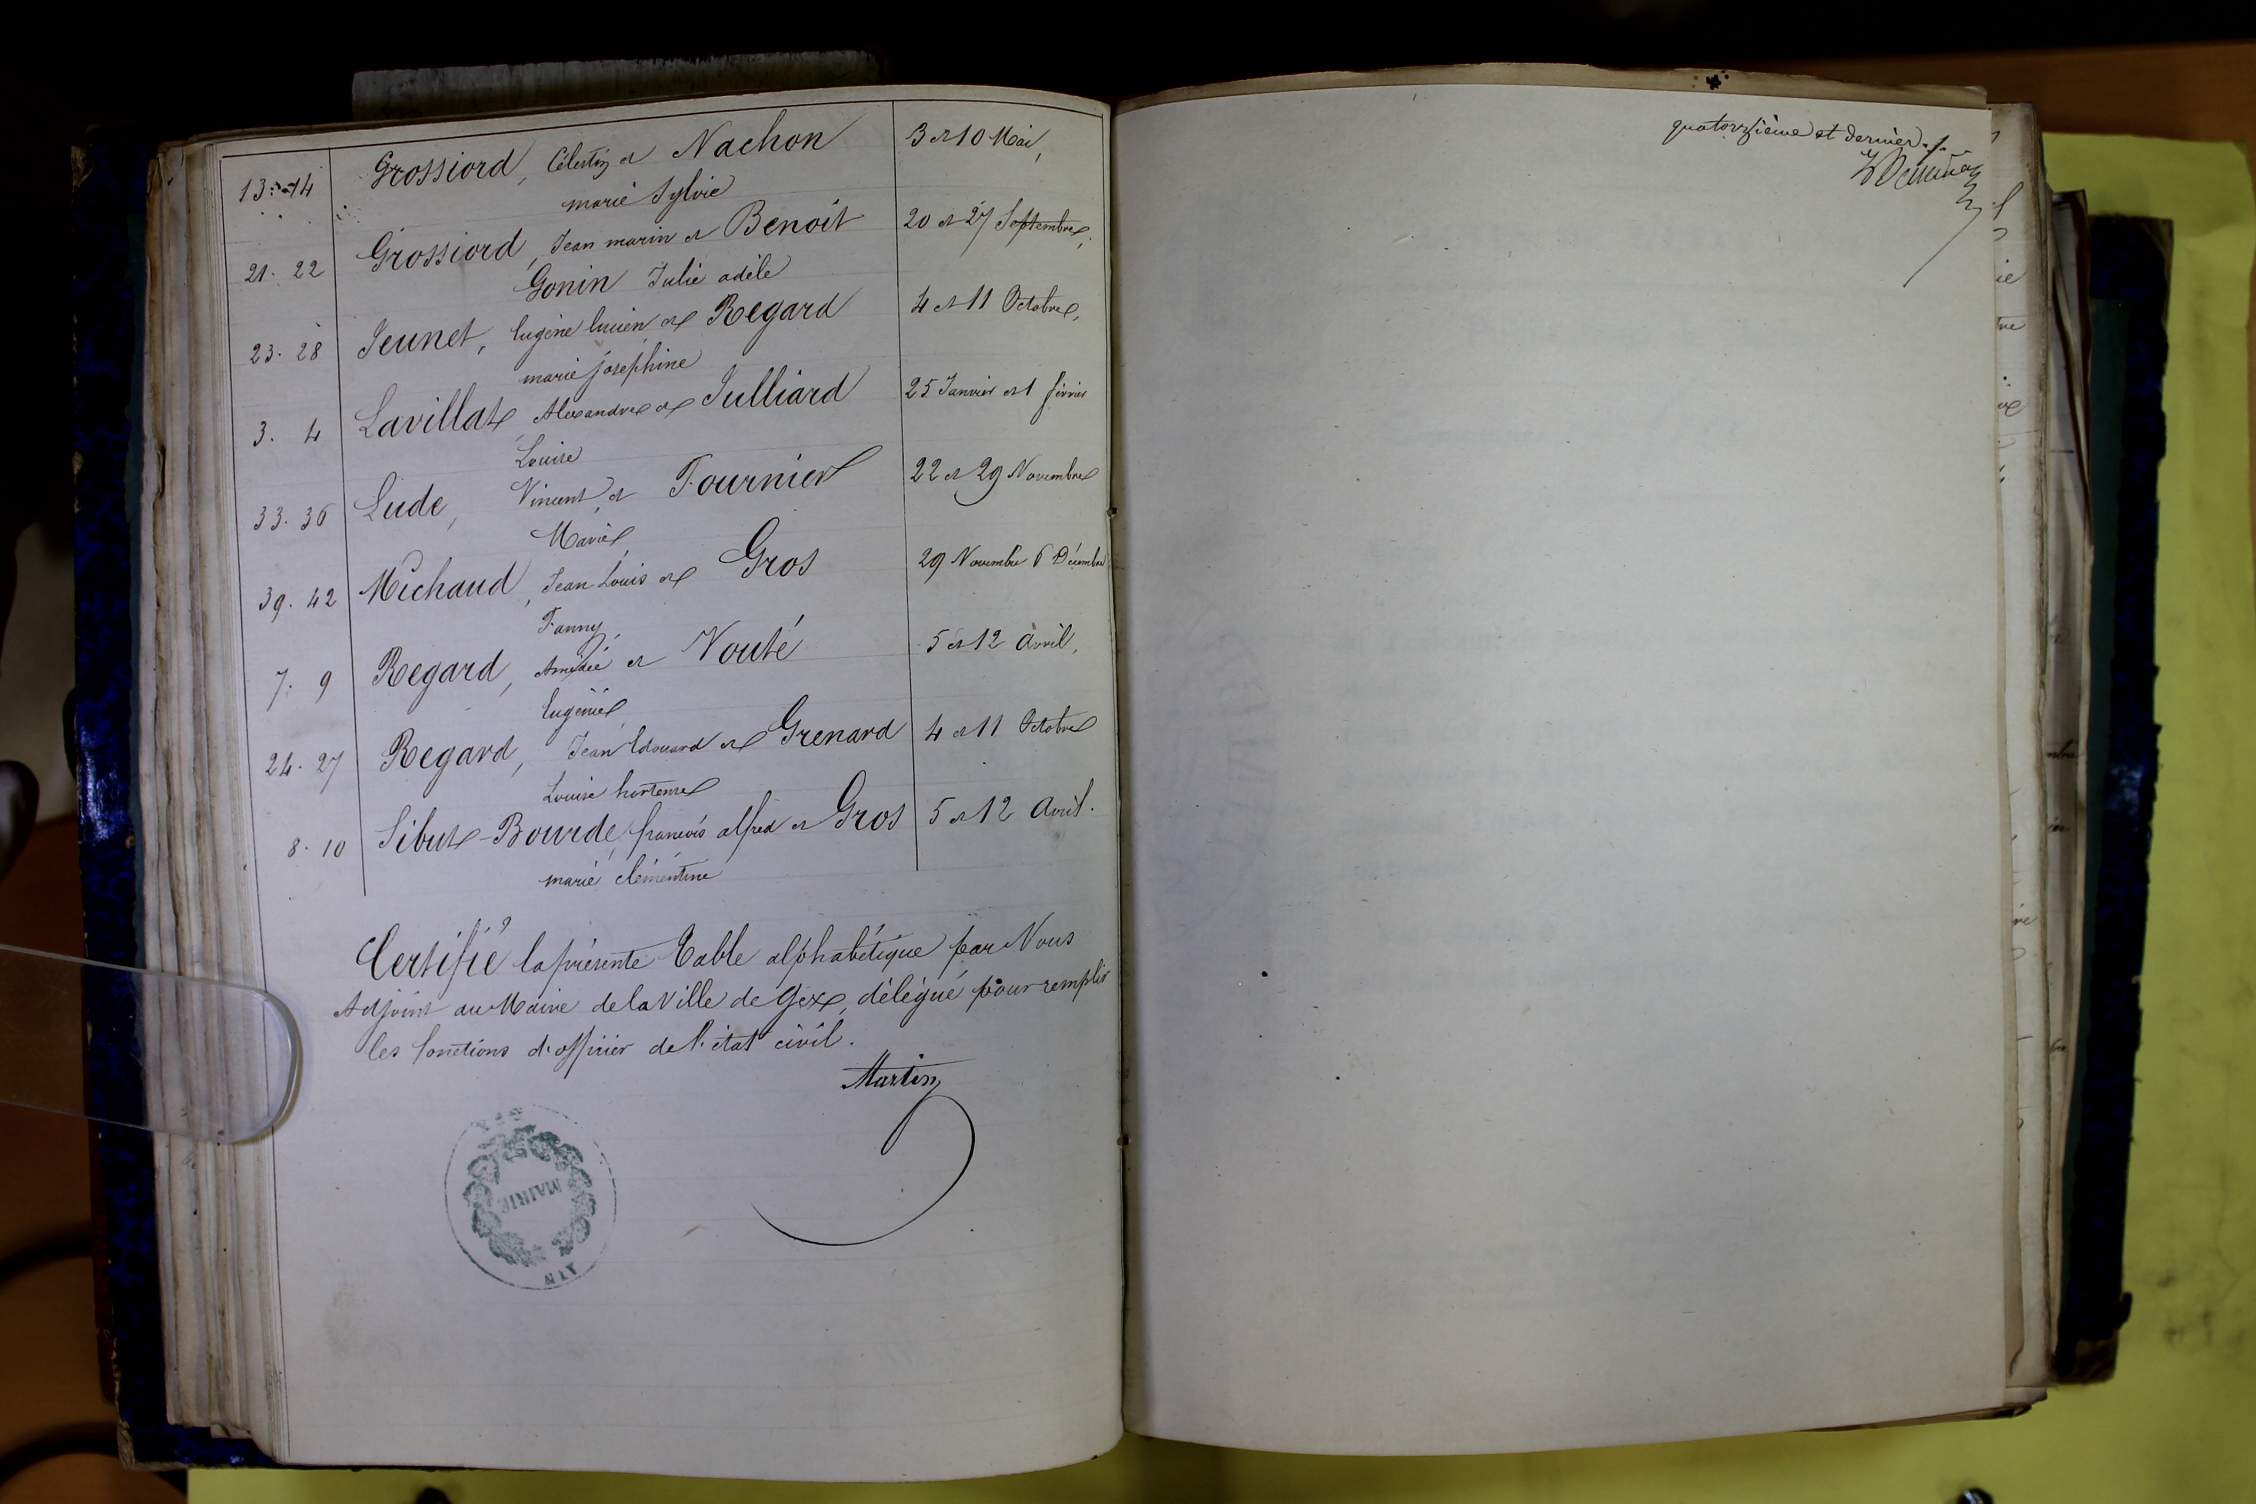 13. 14 Grossiord, Célestin et Nachon 3 et 10 Mai,
marie Sylvie
21. 22 Grossiord, Jean marin et Benoit 20 et 27 Septembre,
Gonin Julie adèle
23. 28 Jeunet, Eugène lucien et Regard 4 et 11 Octobre,
marie joséphine
3. 4 Lavillat, Alexandre et Julliard 25 Janvier et 1 février
Louise
33. 36 Lude, Vincent et Fournier 22 et 29 Novembre
Marie
39. 42 Michaud, Jean Louis et Gros 29 Novembre 6 Décembre
Fanny
7. 9 Regard, Amédée et Vouté 5 et 12 Avril,
Eugénie
24. 27 Regard, Jean Edouard et Grenard 4 et 11 Octobre
Louise hortense
8. 10 Sibut-Bourde, francois alfred et Gros 5 et 12 Avril.
marie clémentine
Certifié la présente Table alphabétique par Nous
Adjoint au Maire de la Ville de Gex, délégué pour remplir
les fonctions d'officier de l'état civil.
Martin
GEX
MAIRIE
AIN
quatorzième et dernier.